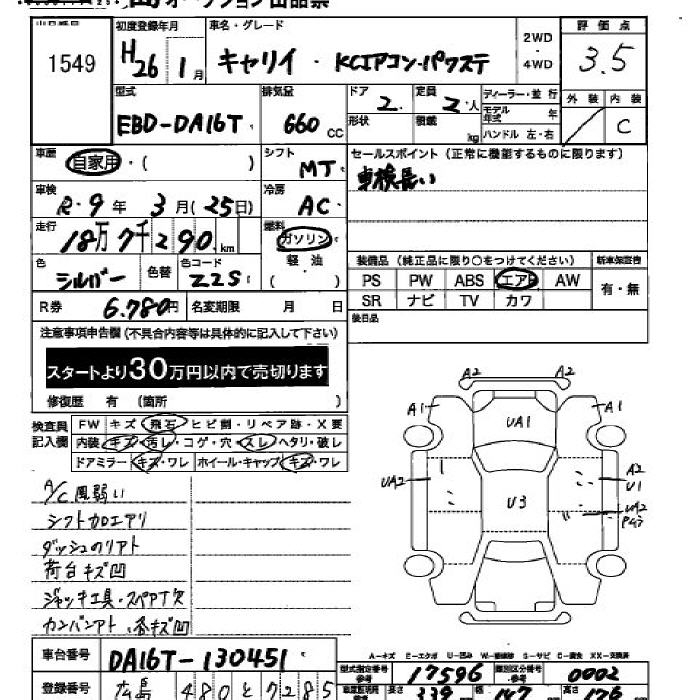 オークション出品票
出品番号
1549
初度登録年月
H26年 1月
車名・グレード
キャリイ・KCエアコン・パワステ
2WD
・
4WD
評価点
3.5
外装 内装
C
型式
EBD-DA16T
排気量
660 cc
ドア
2
形状
定員
2人
積載 kg
ディーラー・並行
モデル年式 年
ハンドル 左・右
車歴
自家用・( )
シフト
MT
セールスポイント (正常に機能するものに限ります)
車検長い
車検
R・9年 3月(25日)
冷房
AC
走行
18万7千290km
燃料
ガソリン
軽油
( )
色
シルバー
色替
色コード
Z2S
装備品 (純正品に限り○をつけてください)
新車保証書
PS PW ABS エアB AW
SR ナビ TV カワ
有・無
後日品
R券 6.780円
名変期限 月 日
注意事項申告欄 (不具合内容等は具体的に記入して下さい)
スタートより30万円以内で売切ります
修復歴 有 (箇所 )
検査員記入欄
FW キズ・飛石・ヒビ割・リペア跡・X要
内装 キズ・汚レ・コゲ・穴・スレ・ヘタリ・破レ
ドアミラー キズ・ワレ ホイール・キャップ キズ・ワレ
A/C風弱い
シフトカロエアリ
ダッシュのリアト
荷台キズ凹
ジャッキ工具・スペアT欠
カンバンアト、各キズ凹
A2 A2
A1 UA1 A1
UA2 U3
A2
U1
UA2
A-キズ E-エクボ U-凹み W-補修跡 S-サビ C-腐食 XX-交換済
車台番号 DA16T-130451
型式指定番号 17596
類別区分番号 0002
登録番号 広島 480と7285
長さ 339
幅 147
高さ